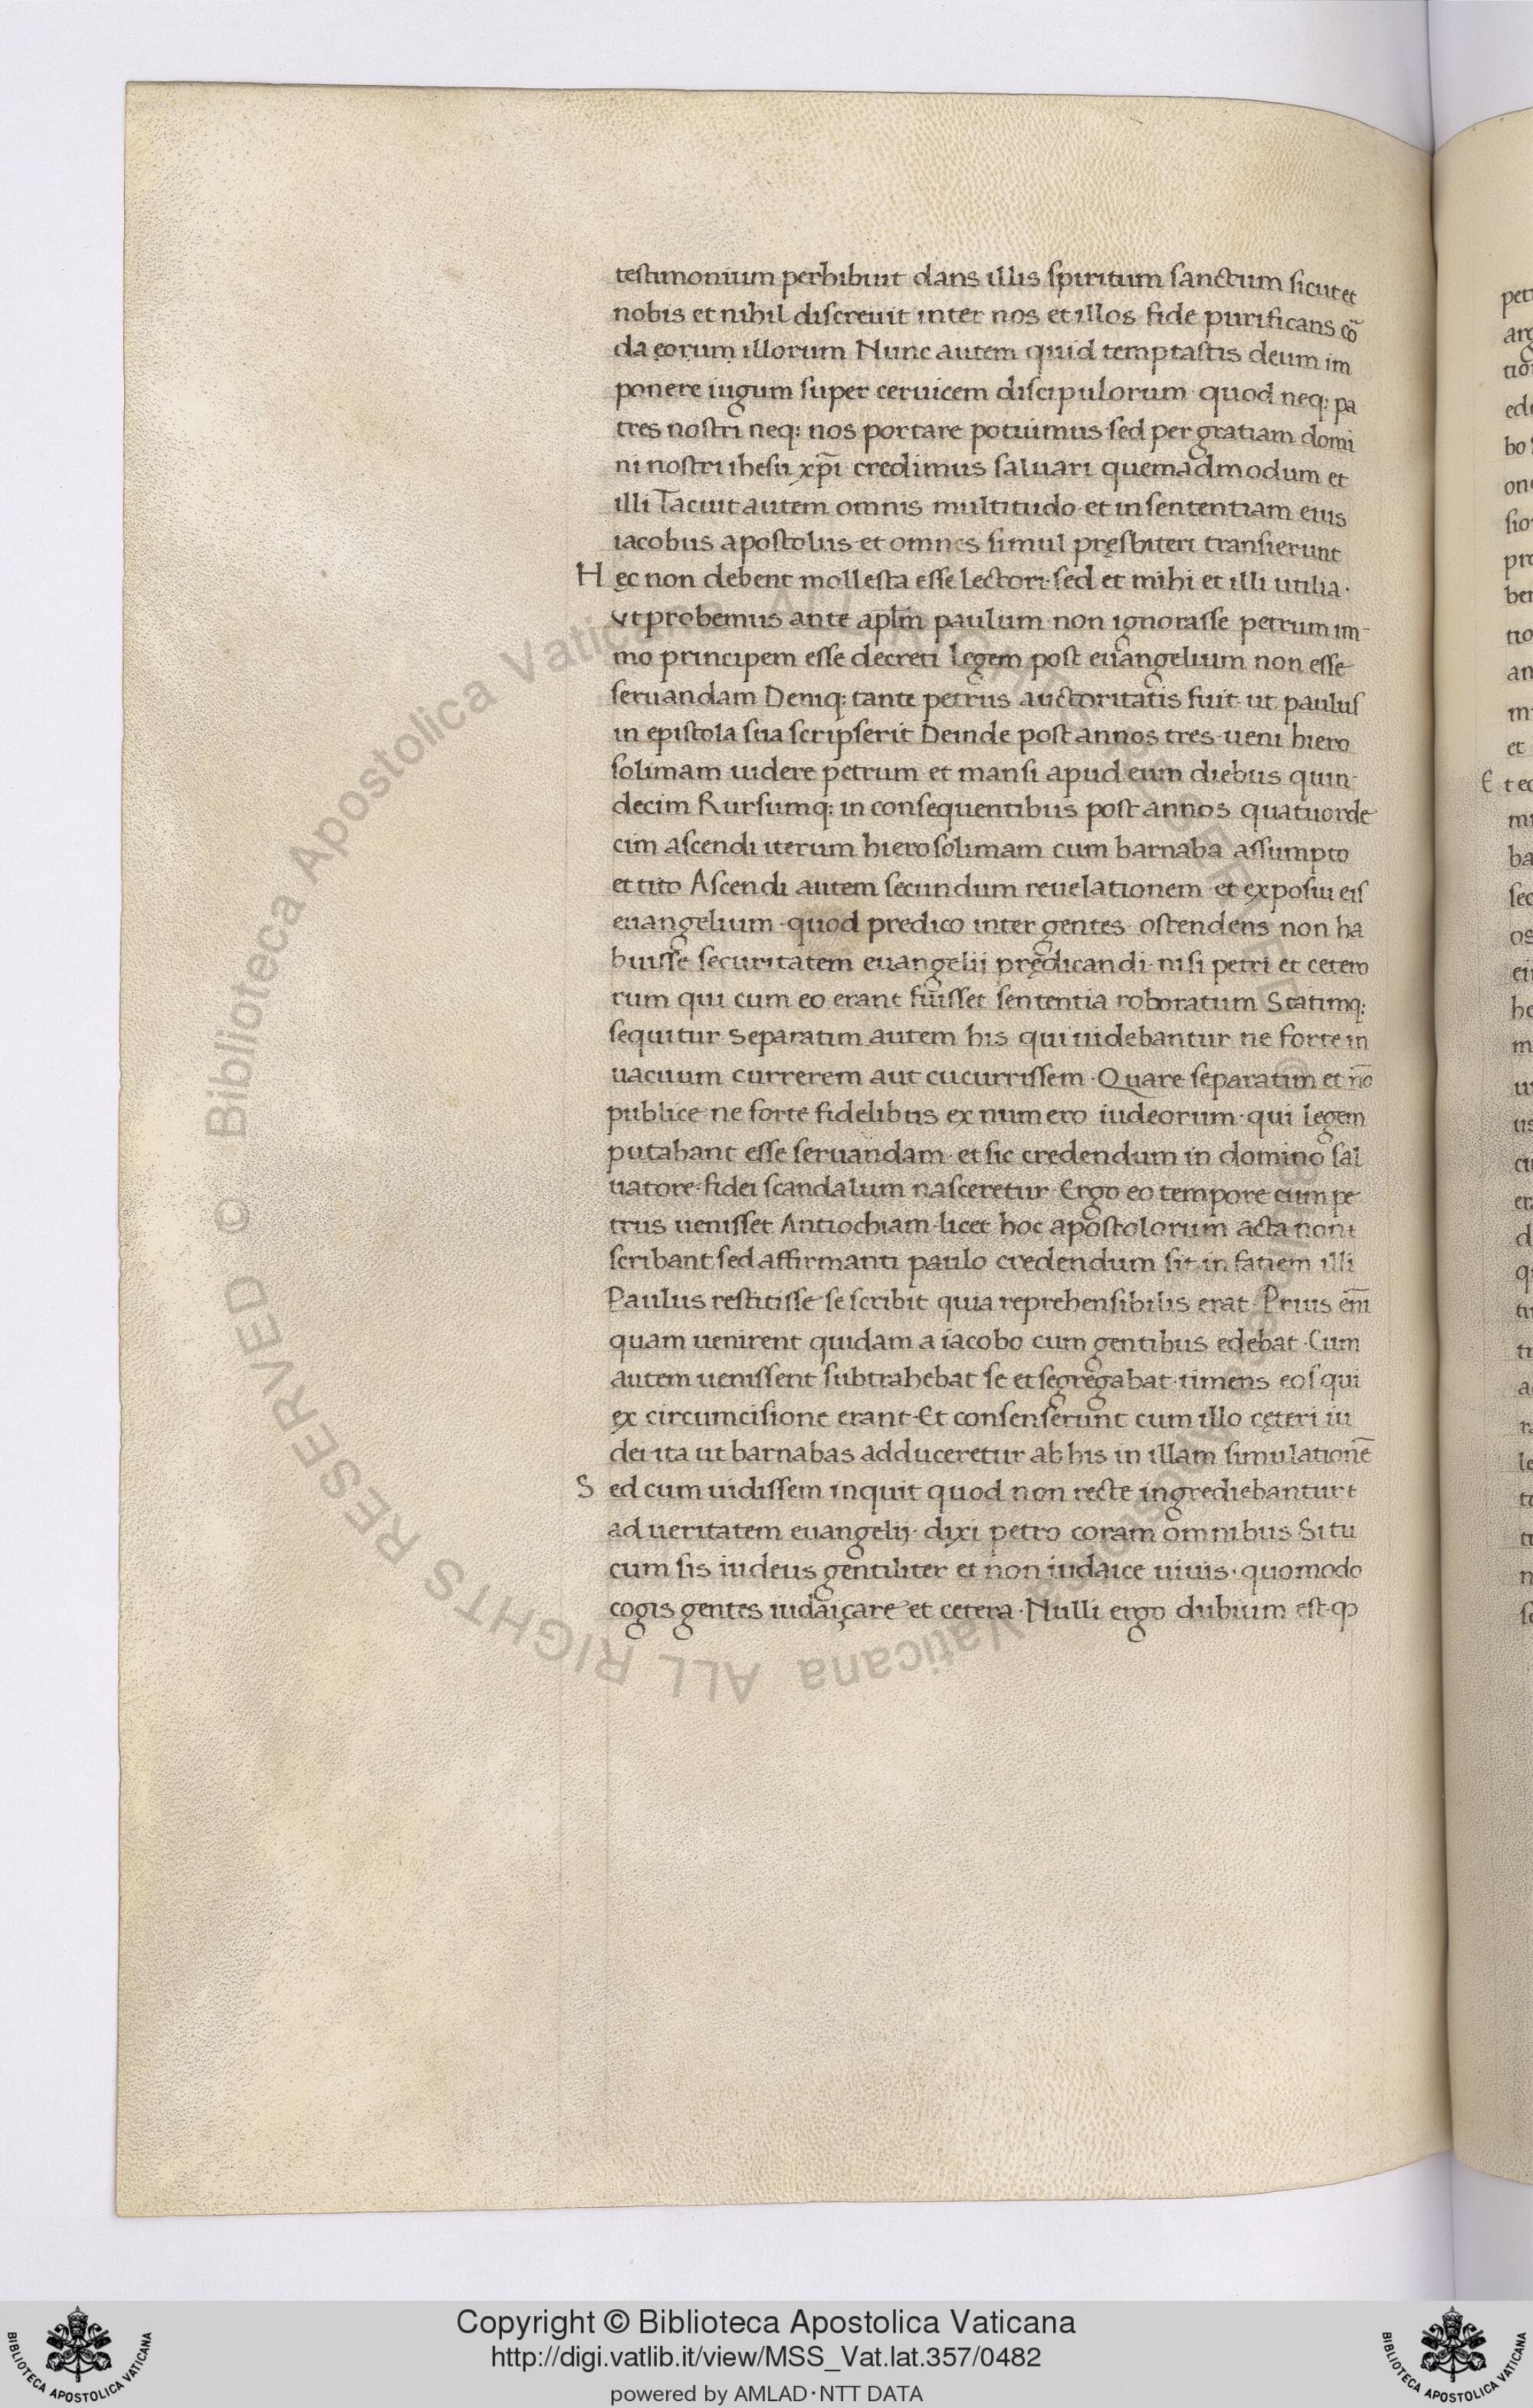 testimonium perhibuit dans illis spiritum sanctum sicut et
nobis et nihil discreuit inter nos et illos fide purificans co᷃
da eorum illorum Nunc autem quid temptastis deum im
ponere iugum super ceruicem discipulorum· quod neq: pa
tres nostri neq: nos portare potuimus· sed per gratiam domi
ni nostri ihesu xp̄i credimus saluari quemadmodum et
illi Tacuit autem omnis multitudo· et in sententiam eius
iacobus apostolus· et omnes simul pręsbiteri transierunt
Hec non debent mollesta esse lectori· sed et mihi et illi utilia·
vt probemus ante apl̄m paulum· non ignorasse petrum im-
mo principem esse decreti legem post euangelium non esse
seruandam Deniq: tante petrus auctoritatis fuit· ut paulus
in epistola sua scripserit Deinde post annos tres· ueni hiero
solimam uidere petrum· et mansi apud eum diebus quin-
decim Rursumq: in consequentibus post annos quatuorde
cim ascendi iterum hierosolimam cum barnaba assumpto
et tito Ascendi autem secundum reuelationem· et exposui eis
euangelium· quod predico inter gentes· ostendens non ha
buisse securitatem euangelij prędicandi· nisi petri et cetero
rum qui cum eo erant fuisset sententia roboratum Statimq:
sequitur separatim autem his qui uidebantur ne forte in
uacuum currerem aut cucurrissem· Quare separatim et nō
publice· ne forte fidelibus ex numero iudeorum· qui legem
putabant esse seruandam· et sic credendum in domino sal
uatore· fidei scandalum nasceretur· Ergo eo tempore cum pe
trus uenisset Antiochiam· licet hoc apostolorum acta non
scribant sed affirmanti paulo credendum sit· in fatiem illi
Paulus restitisse se scribit quia reprehensibilis erat· Prius eni̅
quam uenirent quidam a iacobo cum gentibus edebat· Cum
autem uenissent subtrahebat se et segregabat· timens eos qui
ex circumcisione erant· Et consenserunt cum illo cęteri iu
dei· ita ut barnabas adduceretur ab his in illam simulationē
Sed cum uidissem inquit quod non recte ingrediebantur
ad ueritatem euangelij· dixi petro coram omnibus Si tu
cum sis iudeus gentiliter et non iudaice uiuis· quomodo
cogis gentes iudaiçare et cetera· Nulli ergo dubium est· ꝙ
pet
arg
tio
ede
bo
on
sio
pre
ber
tio
an
m
et
Et ec
mi
ba
sec
os
ei
he
m
u
us
cu
er
d
q
tu
t
a
r
le
t
t
n
se
© Biblioteca Apostolica Vaticana ALL RIGHTS RESERVED © Biblioteca Apostolica Vaticana ALL RIGHTS RESERVED
Copyright © Biblioteca Apostolica Vaticana
http://digi.vatlib.it/view/MSS_Vat.lat.357/0482
powered by AMLAD·NTT DATA
BIBLIOTECA APOSTOLICA VATICANA
BIBLIOTECA APOSTOLICA VATICANA